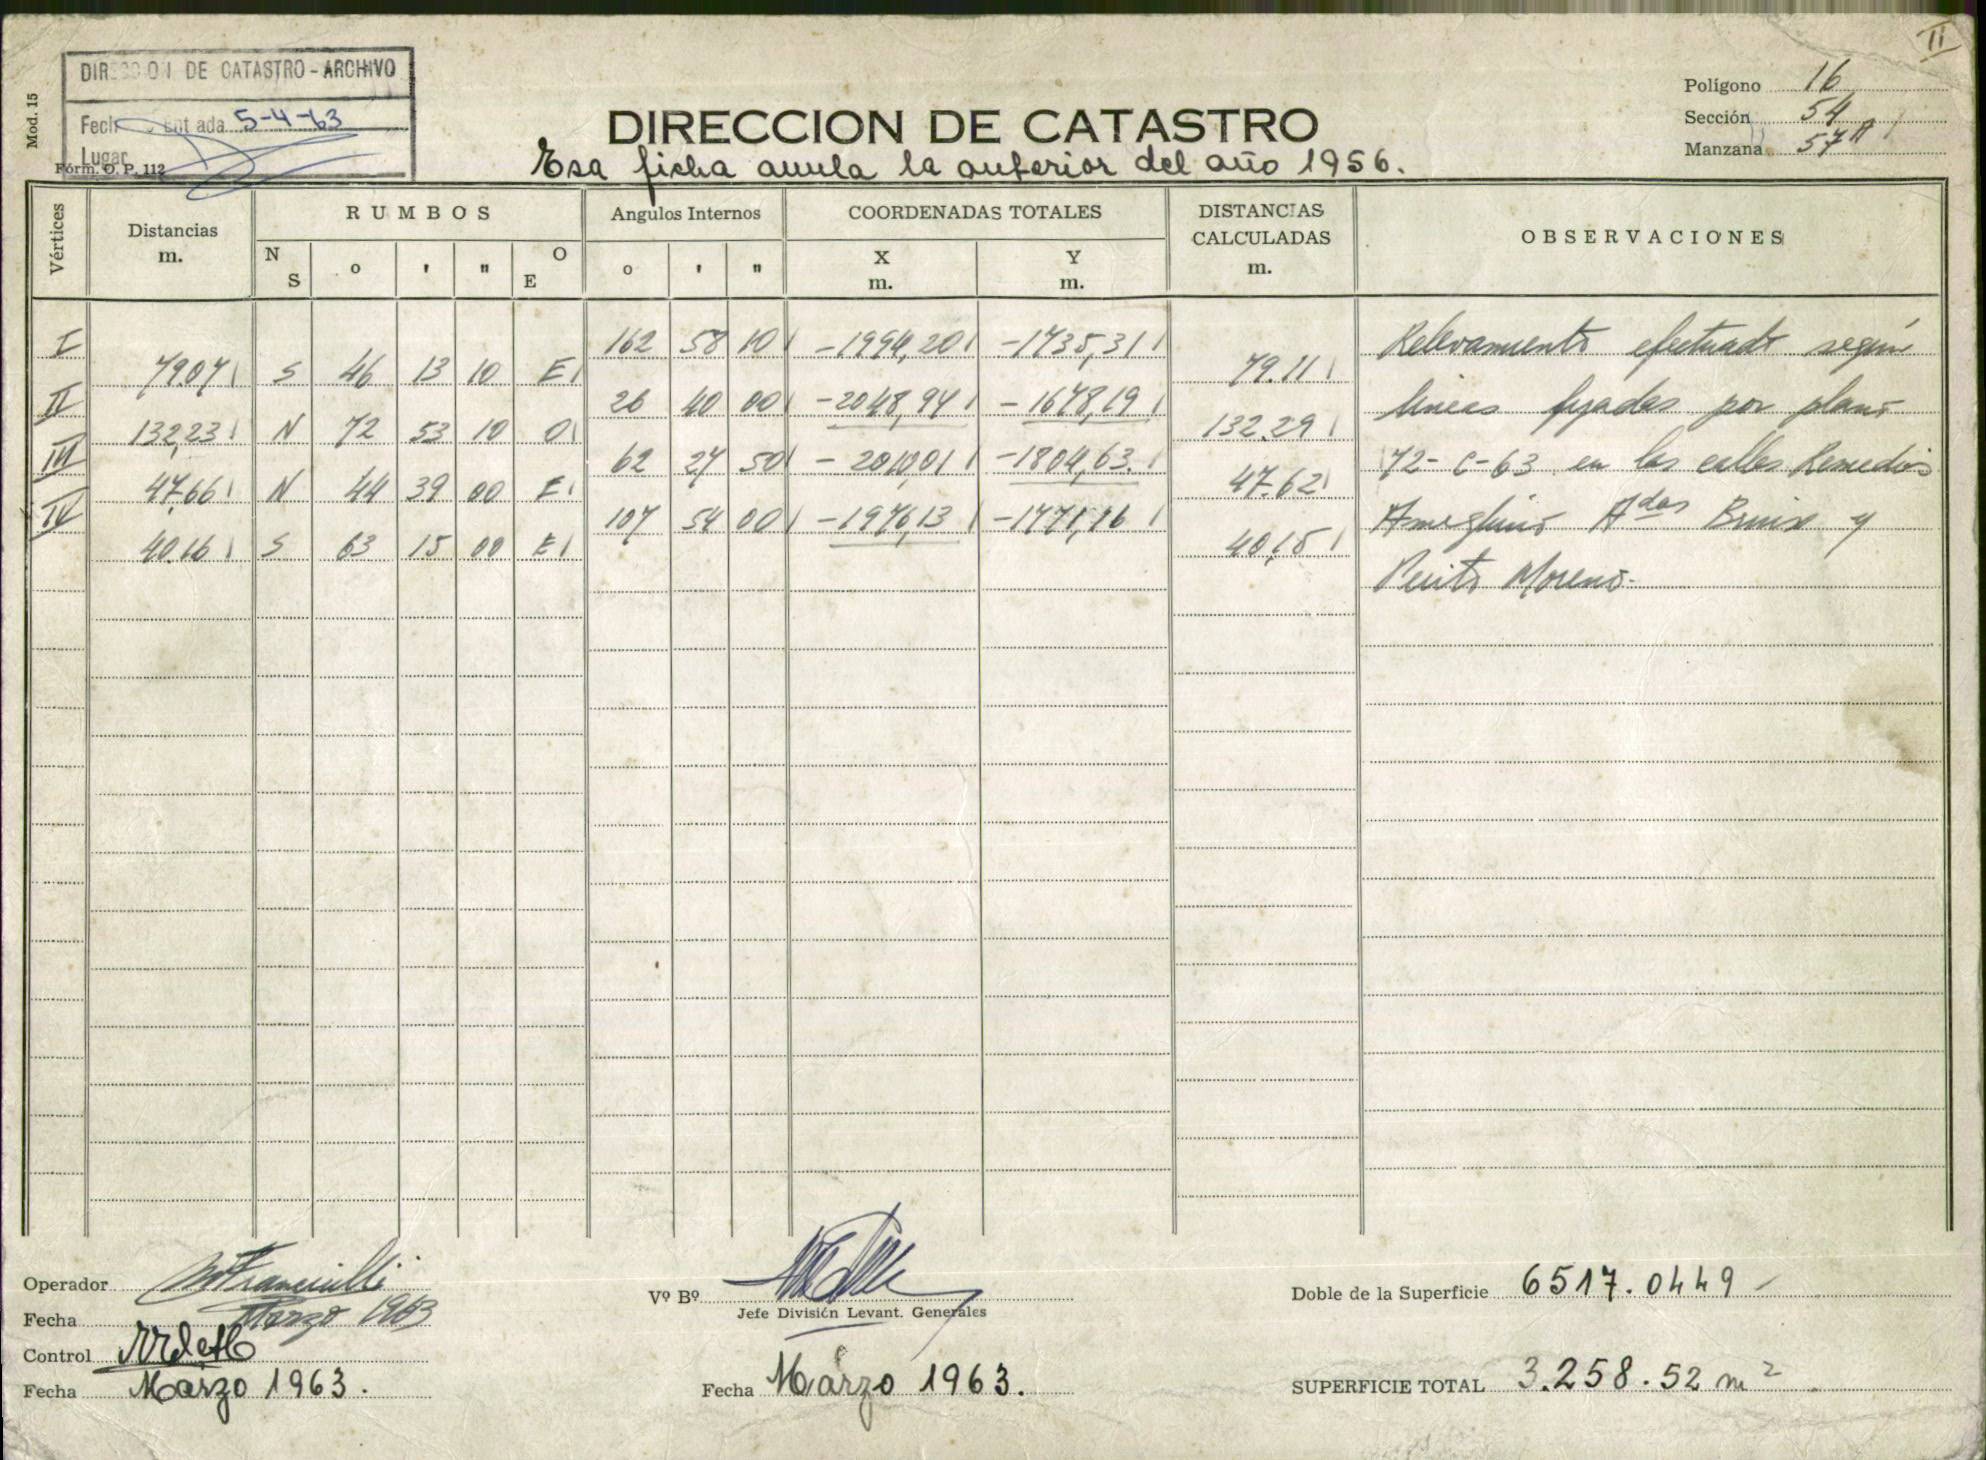 II
DIRECCION DE CATASTRO - ARCHIVO
5-4-63
Lugar
Mod. 15
Fórm. O. P. 112
DIRECCION DE CATASTRO
Esa ficha anula la anterior del año 1956.
Polígono 16
Sección 54
Manzana 57A
Vértices
Distancias m.
RUMBOS
N S ° ' " O E
Angulos Internos
° ' "
COORDENADAS TOTALES
X m. Y m.
DISTANCIAS CALCULADAS m.
OBSERVACIONES
I 162 58 10 -1994,20 -1735,31
79.07 S 46 13 10 E 79.11
II 26 40 00 -2048,94 -1678,19
132,23 N 72 53 10 O 132.29
III 62 27 50 -2010,01 -1804,63
47.66 N 44 39 00 E 47.62
IV 107 54 00 -1976,13 -1771,16
40.16 S 63 15 00 E 40,15
Relevamiento efectuado según
lineas fijadas por plano
72-C-63 en las calles Remedios
Ameghino Adas Bruix y
Perito Moreno.
Operador
Fecha Marzo 1963
Control
Fecha Marzo 1963.
Vº Bº
Jefe División Levant. Generales
Fecha Marzo 1963.
Doble de la Superficie 6517.0449
SUPERFICIE TOTAL 3.258.52 m²